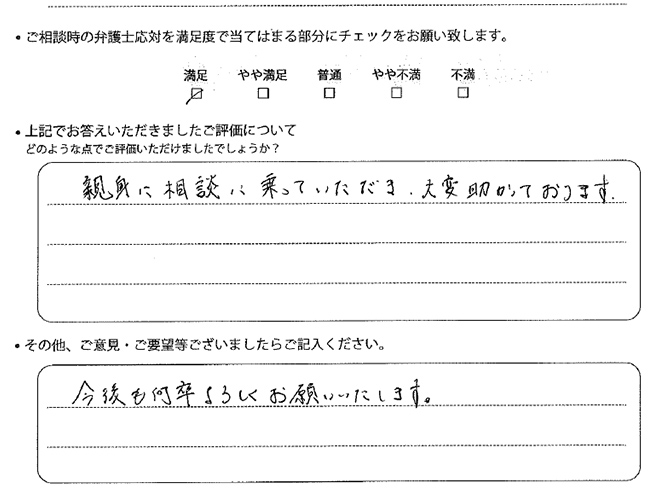 ・ご相談時の弁護士応対を満足度で当てはまる部分にチェックをお願い致します。
満足 やや満足 普通 やや不満 不満
☑ □ □ □ □
・上記でお答えいただきましたご評価について
どのような点でご評価いただけましたでしょうか？
親身に相談に乗っていただき、大変助かっております。
・その他、ご意見・ご要望等ございましたらご記入ください。
今後も何卒よろしくお願いいたします。